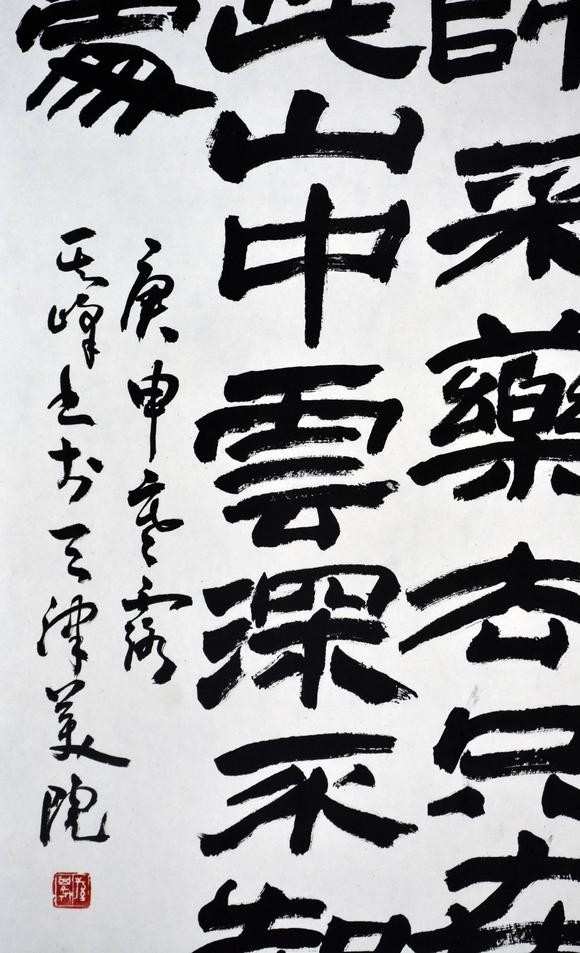 師采藥去只在
此山中雲深不知
處
庚申寒露
其峰书於天津美院